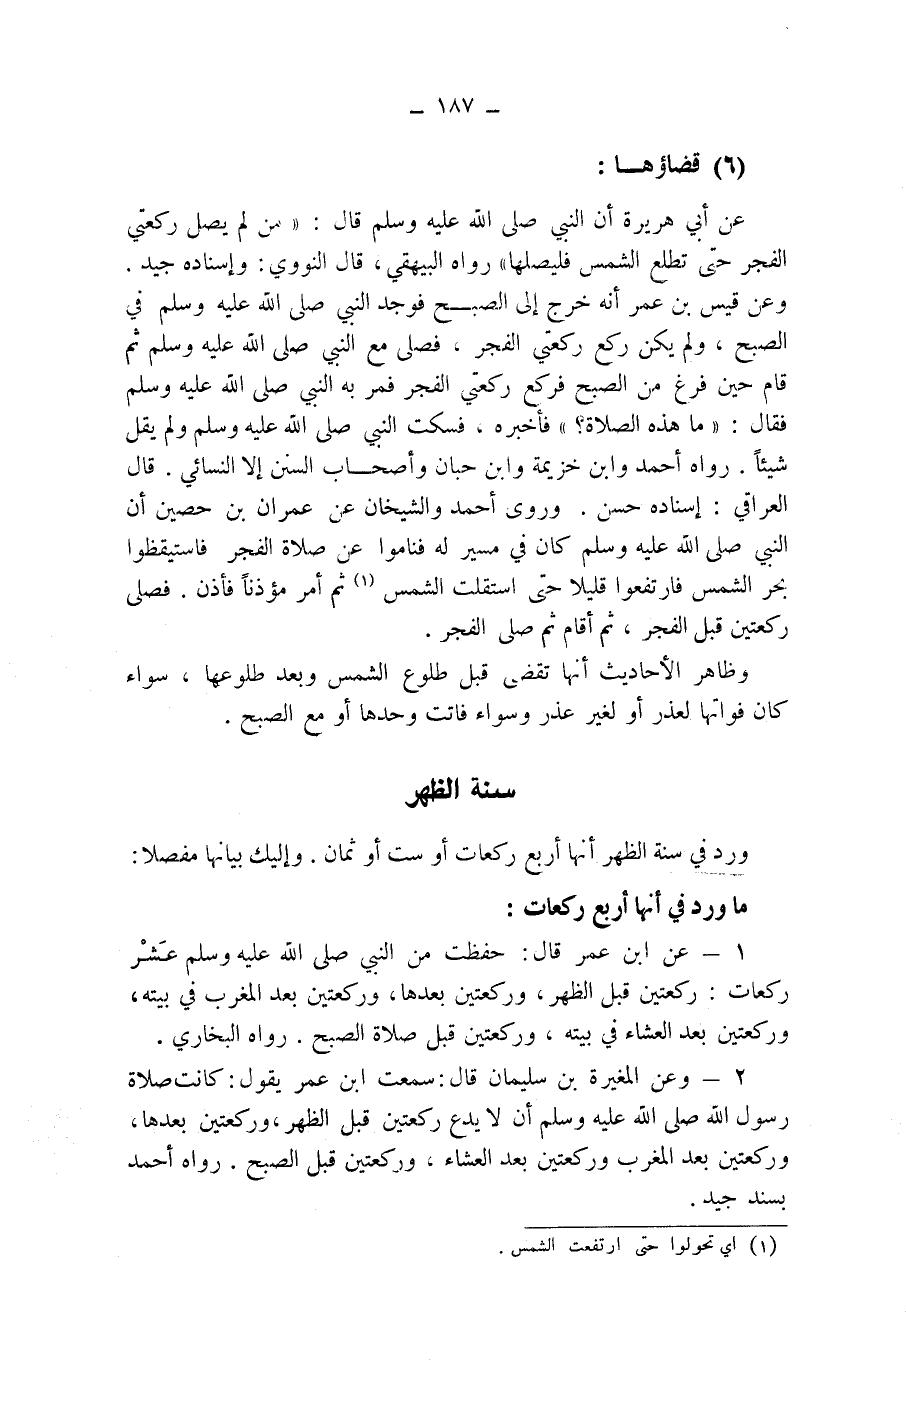 – ١٨٧ –
(٦) قضاؤهـــا :
عن أبي هريرة أن النبي صلى الله عليه وسلم قال : « من لم يصل ركعتي
الفجر حتى تطلع الشمس فليصلها» رواه البيهقي ، قال النووي : وإسناده جيد .
وعن قيس بن عمر أنه خرج إلى الصبـــح فوجد النبي صلى الله عليه وسلم في
الصبح ، ولم يكن ركع ركعتي الفجر ، فصلى مع النبي صلى الله عليه وسلم ثم
قام حين فرغ من الصبح فركع ركعتي الفجر فمر به النبي صلى الله عليه وسلم
فقال : « ما هذه الصلاة؟ » فأخبره ، فسكت النبي صلى الله عليه وسلم ولم يقل
شيئاً . رواه أحمد وابن خزيمة وابن حبان وأصحـــاب السنن إلا النسائي . قال
العراقي : إسناده حسن . وروى أحمد والشيخان عن عمران بن حصين أن
النبي صلى الله عليه وسلم كان في مسير له فناموا عن صلاة الفجر فاستيقظوا
بحر الشمس فارتفعوا قليلا حتى استقلت الشمس (١) ثم أمر مؤذناً فأذن . فصلى
ركعتين قبل الفجر ، ثم أقام ثم صلى الفجر .
وظاهر الأحاديث أنها تقضى قبل طلوع الشمس وبعد طلوعها ، سواء
كان فواتها لعذر أو لغير عذر وسواء فاتت وحدها أو مع الصبح .
سنة الظهر
ورد في سنة الظهر أنها أربع ركعات أو ست أو ثمان . وإليك بيانها مفصلا :
ما ورد في أنها أربع ركعات :
١ – عن ابن عمر قال : حفظت من النبي صلى الله عليه وسلم عَشْر
ركعات : ركعتين قبل الظهر ، وركعتين بعدها ، وركعتين بعد المغرب في بيته ،
وركعتين بعد العشاء في بيته ، وركعتين قبل صلاة الصبح . رواه البخاري .
٢ – وعن المغيرة بن سليمان قال : سمعت ابن عمر يقول : كانت صلاة
رسول الله صلى الله عليه وسلم أن لا يدع ركعتين قبل الظهر ، وركعتين بعدها ،
وركعتين بعد المغرب وركعتين بعد العشاء ، وركعتين قبل الصبح . رواه أحمد
بسند جيد .
(١) اي تحولوا حتى ارتفعت الشمس .